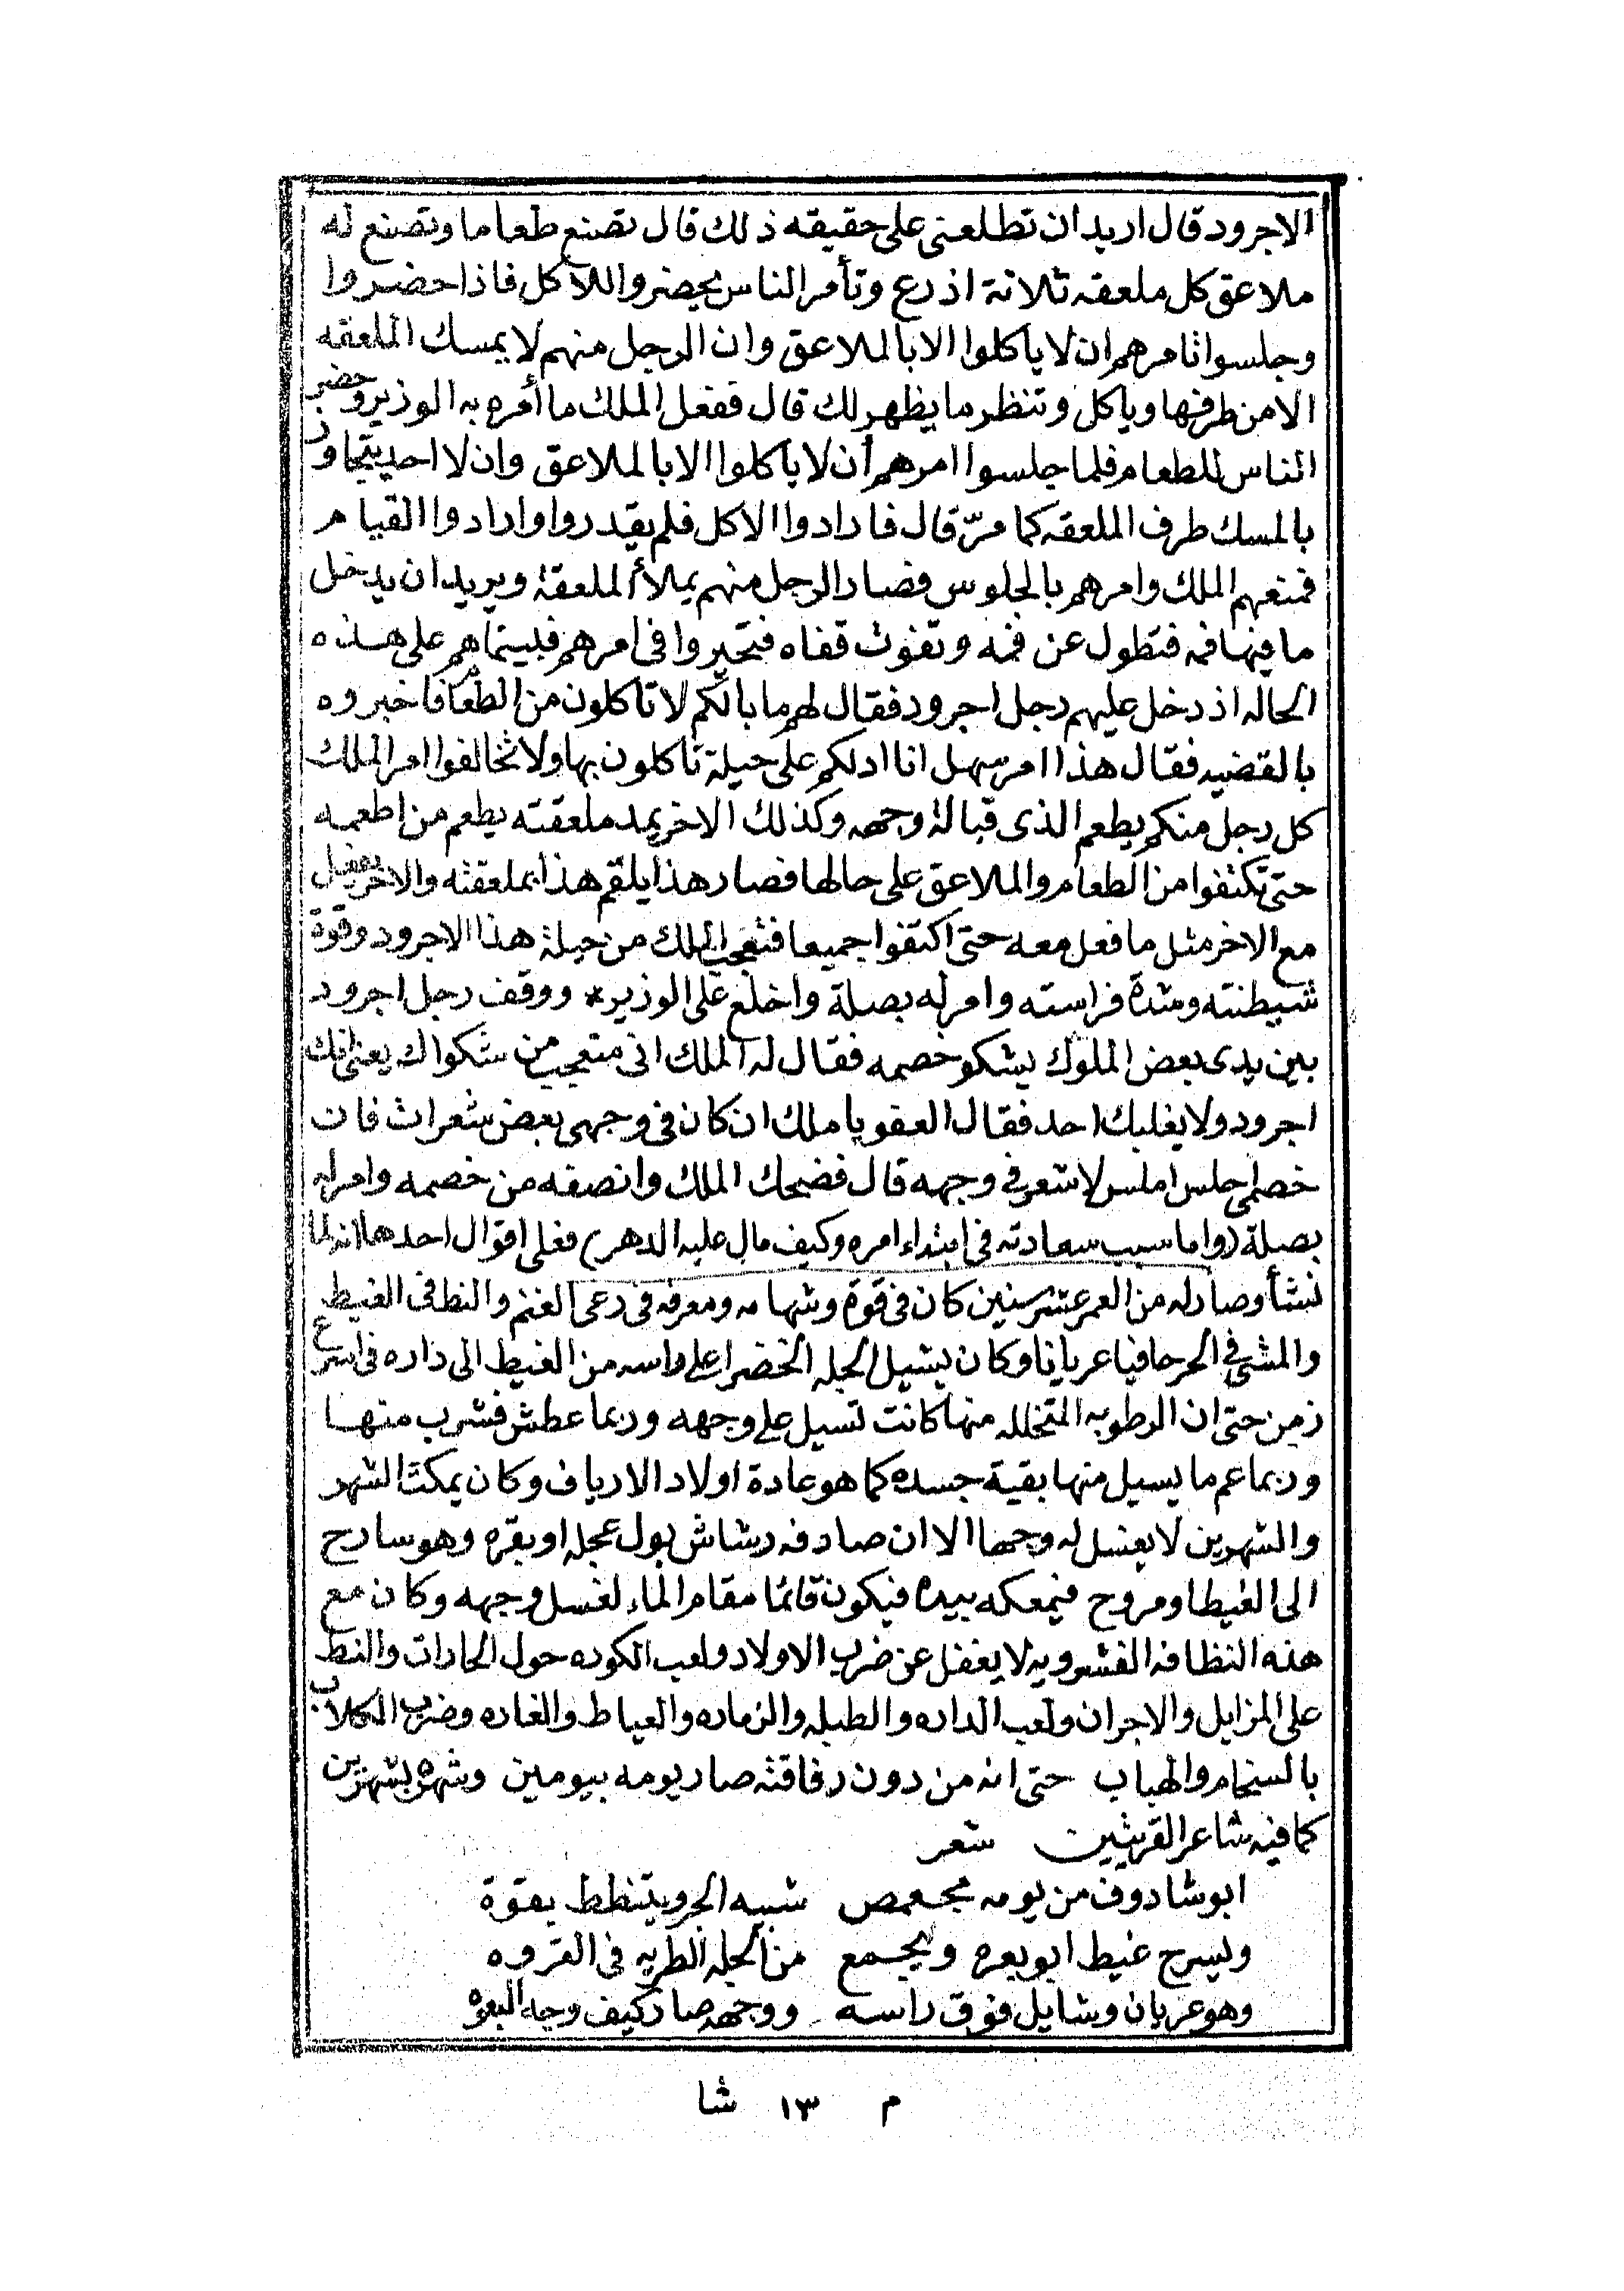 الاجرود قال اريد ان تطلعنى على حقيقه ذلك قال تصنع طعاما وتصنع له
ملاعق كل ملعقه ثلاثة اذرع وتأمر الناس يحضروا للأكل فاذا حضروا
وجلسوا تامرهم ان لا ياكلوا الا بالملاعق وان الرجل منهم لا يمسك الملعقه
الا من طرفها وياكل وتنظر ما يظهر لك قال ففعل الملك ما أمره به الوزير وحضر
الناس للطعام فلما جلسوا امرهم أن لا ياكلوا الا بالملاعق وان لا احد يتجاوز
بالمسك طرف الملعقه كما مرّ قال فارادوا الاكل فلم يقدروا وارادوا القيام
فمنعهم الملك وامرهم بالجلوس فصار الرجل منهم يملأ الملعقة ويريد ان يدخل
ما فيها فمه فتطول عن فمه وتفوت قفاه فتحيروا فى امرهم فبينما هم على هذه
الحاله اذ دخل عليهم رجل اجرود فقال لهم ما بالكم لا تاكلون من الطعام فاخبروه
بالقضيه فقال هذا امر سهل انا ادلكم على حيلة تاكلون بها ولا تخالفوا امر الملك
كل رجل منكم يطعم الذى قبالة وجهه وكذلك الاخر يمد ملعقته يطعم من اطعمه
حتى تكتفوا من الطعام والملاعق على حالها فصار هذا يلقم هذا بملعقته والاخر يفعل
مع الاخر مثل ما فعل معه حتى اكتفوا جميعا فتعجب الملك من حيلة هذا الاجرود وقوة
شيطنته وشدة فراسته وامر له بصلة واخلع على الوزير * ووقف رجل اجرود
بين يدى بعض الملوك يشكو خصمه فقال له الملك انى متعجب من شكواك يعنى انك
اجرود ولا يغلبك احد فقال العفو يا ملك ان كان فى وجهى بعض شعرات فان
خصمى جلس املس لا شعر فى وجهه قال فضحك الملك وانصفه من خصمه وامر له
بصلة (واما سبب سعادته فى ابتداء امره وكيف مال عليه الدهر) فعلى اقوال احدها انه لما
نشأ وصار له من العمر عشر سنين كان فى قوة وشهامه ومعرفه فى رعى الغنم والنط فى الغيط
والمشى فى الحر حافيا عريانا وكان يشيل الجله الخضرا على راسه من الغيط الى داره فى اسرع
زمن حتى ان الرطوبه المتخلله منها كانت تسيل على وجهه وربما عطش فشرب منها
وربما عم ما يسيل منها بقية جسده كما هو عادة اولاد الارياف وكان يمكث الشهر
والشهرين لا يغسل له وجها الا ان صادفه رشاش بول عجله او بقره وهو سارح
الى الغيط او مروح فيمعكه بيده فيكون قائما مقام الماء لغسل وجهه وكان مع
هذه النظافه القشرويه لا يغفل عن ضرب الاولاد ولعب الكوره حول الحارات والنط
على المزابل والاجران ولعب الداره والطبله والزماره والعياط والغاره وضرب الكلاب
بالسخام والهباب حتى انه من دون رفاقته صار يومه بيومين وشهره بشهرين
كما فيه شاعر القريتين شعر
ابو شادوف من يومه مجعمص شبيه الجرو يتنطط بقوة
ويسرح غيط ابو بعره ويجمع من الجله الطريه فى القروه
وهو عريان وشايل فوق راسه ووجهه صار كيف وجه البعوه
م ١٣ شا